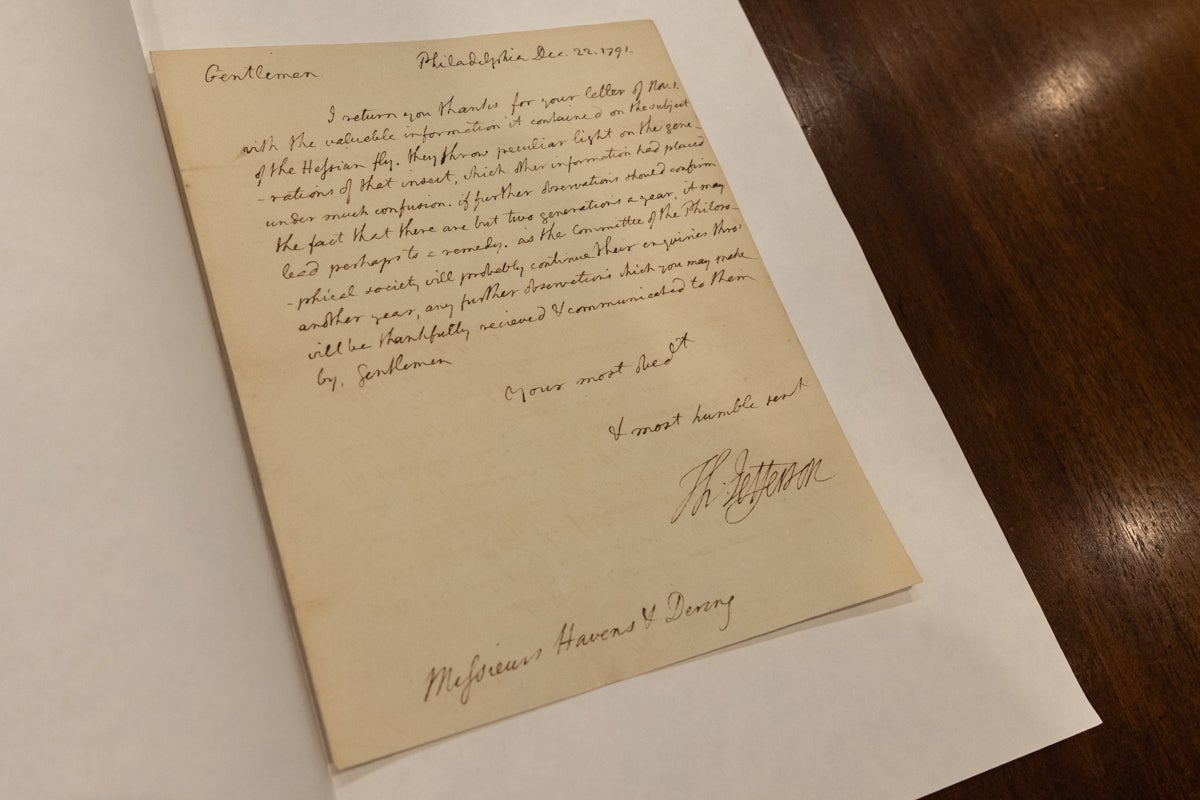 Gentlemen Philadelphia Dec. 22. 1791.
I return you thanks for your letter of Nov. 1.
with the valuable information it contained on the subject
of the Hessian fly. they throw peculiar light on the gene-
-rations of that insect, which other information had placed
under much confusion. if further observations should confirm
the fact that there are but two generations a year, it may
lead perhaps to a remedy. as the Committee of the Philoso-
-phical society will probably continue their enquiries thro'
another year, any further observations which you may make
will be thankfully recieved & communicated to them
by, Gentlemen
Your most obedt
& most humble servt
Th: Jefferson
Messieurs Havens & Dering